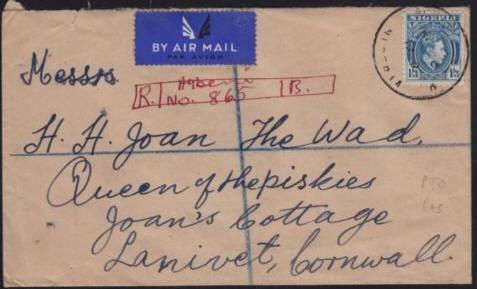 NIGERIA
1/3 1/3
BY AIR MAIL
PAR AVION
Messrs
R. No. 865 B.
H. H. Joan The Wad,
Queen of the piskies
Joan's Cottage
Lanivet, Cornwall.
PTO